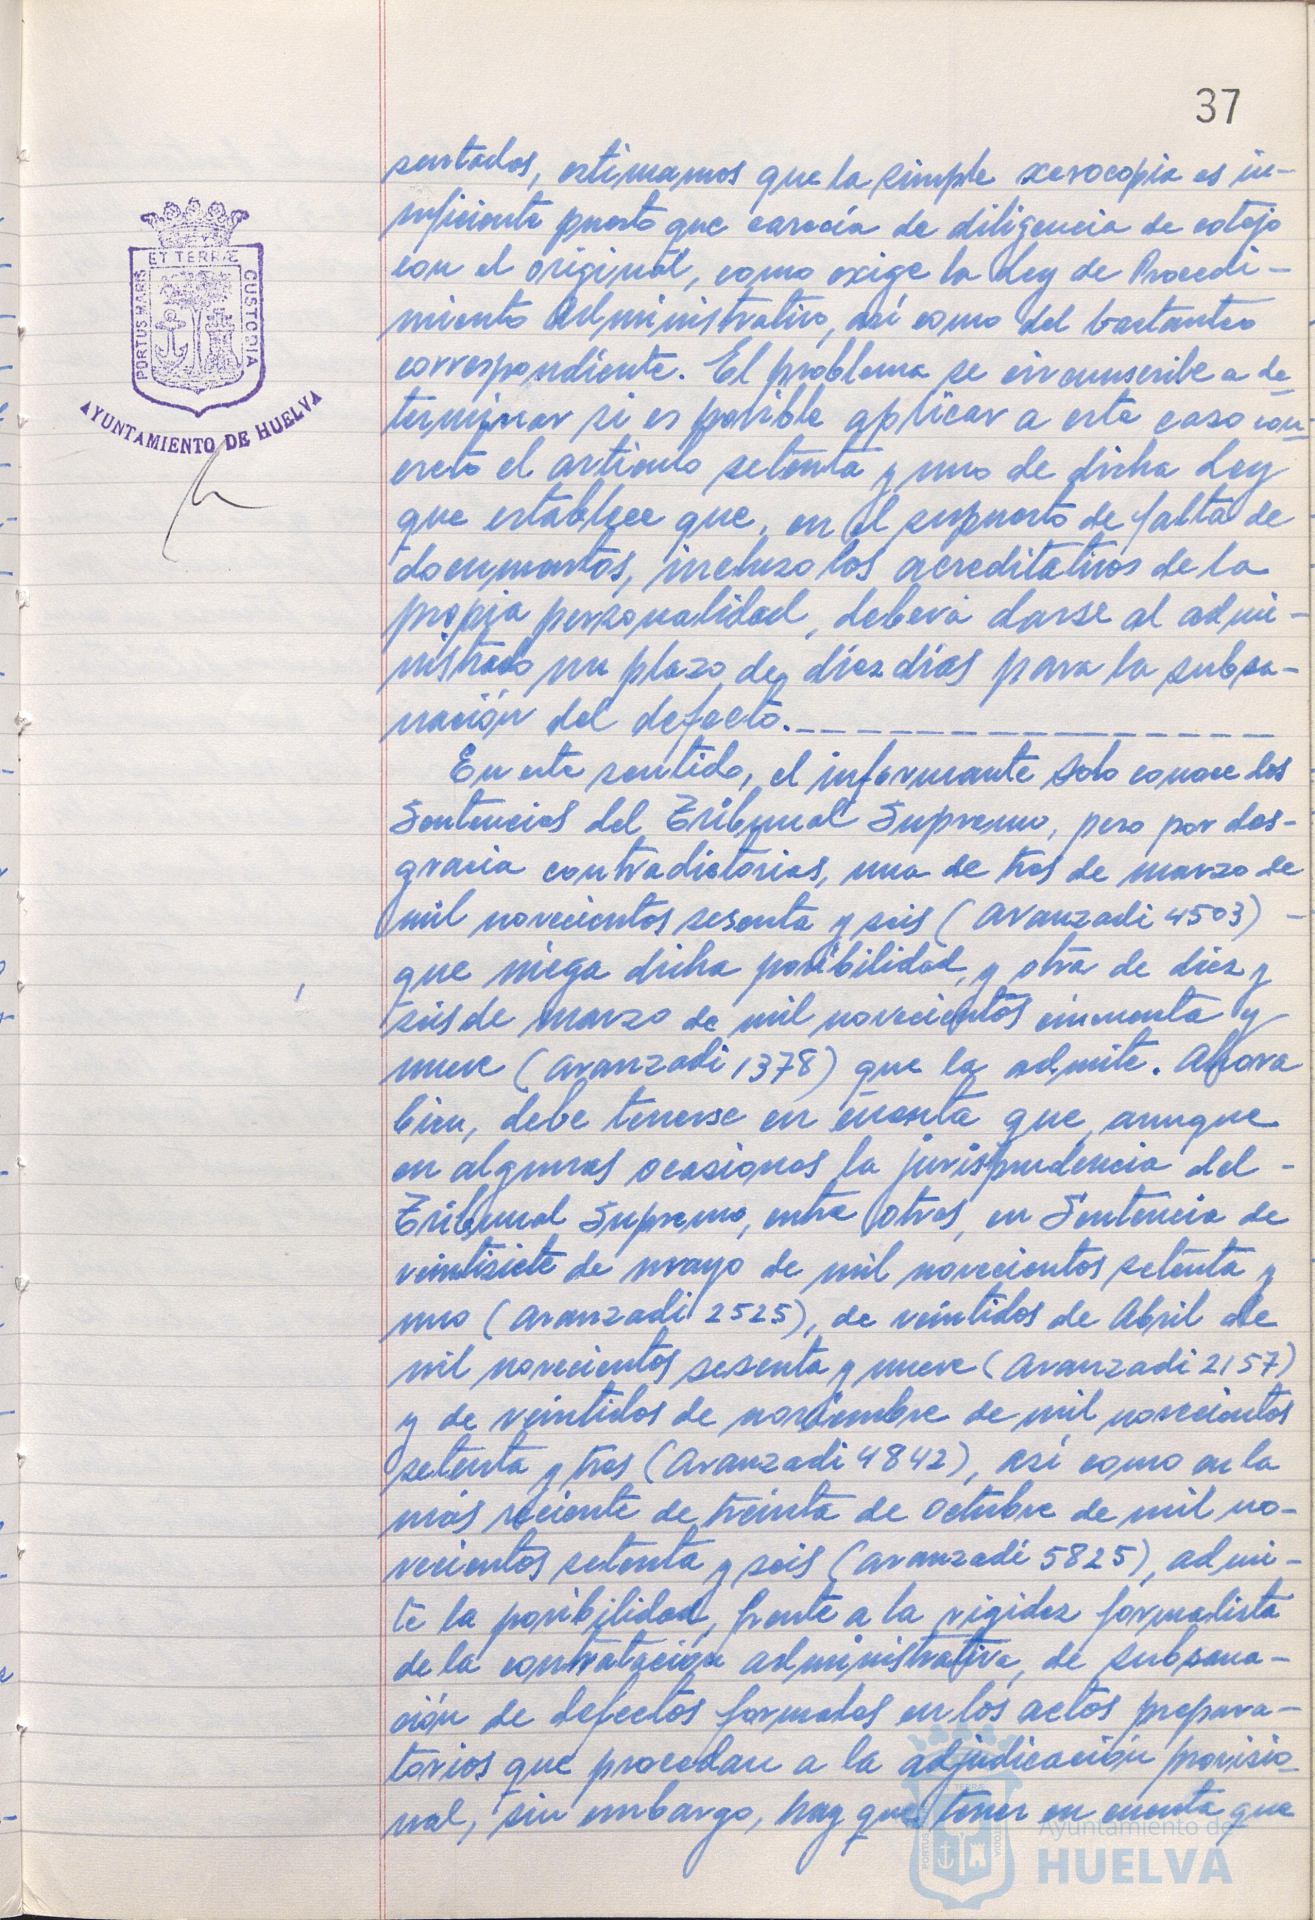 37
PORTUS MARIS
ET TERRÆ
CUSTODIA
AYUNTAMIENTO DE HUELVA
sentados, estimamos que la simple xerocopia es in-
suficiente puesto que carecía de diligencia de cotejo
con el original, como exige la Ley de Procedi-
miento Administrativo, así como del bastanteo
correspondiente. El problema se circunscribe a de-
terminar si es posible aplicar a este caso con-
creto el artículo setenta y uno de dicha Ley
que establece que, en el supuesto de falta de
documentos, incluso los acreditativos de la
propia personalidad, deberá darse al admi-
nistrado un plazo de diez días para la subsa-
nación del defecto.
En este sentido, el informante solo conoce dos
Sentencias del Tribunal Supremo, pero por des-
gracia contradictorias, una de tres de marzo de
mil novecientos sesenta y seis (Aranzadi 4503) -
que niega dicha posibilidad, y otra de diez y
seis de marzo de mil novecientos cincuenta y
nueve (Aranzadi 1378) que la admite. Ahora
bien, debe tenerse en cuenta que, aunque
en algunas ocasiones la jurisprudencia del -
Tribunal Supremo, entre otras, en Sentencia de
veintisiete de mayo de mil novecientos setenta y
uno (Aranzadi 2525), de veintidos de Abril de
mil novecientos sesenta y nueve (Aranzadi 2157)
y de veintidos de noviembre de mil novecientos
setenta y tres (Aranzadi 4842), así como en la
más reciente de treinta de Octubre de mil no-
vecientos setenta y seis (Aranzadi 5825), admi-
te la posibilidad, frente a la rigidez formalista
de la contratación administrativa, de subsana-
ción de defectos formados en los actos prepara-
torios que procedan a la adjudicación provisio-
nal, sin embargo, hay que tener en cuenta que
Ayuntamiento de
HUELVA